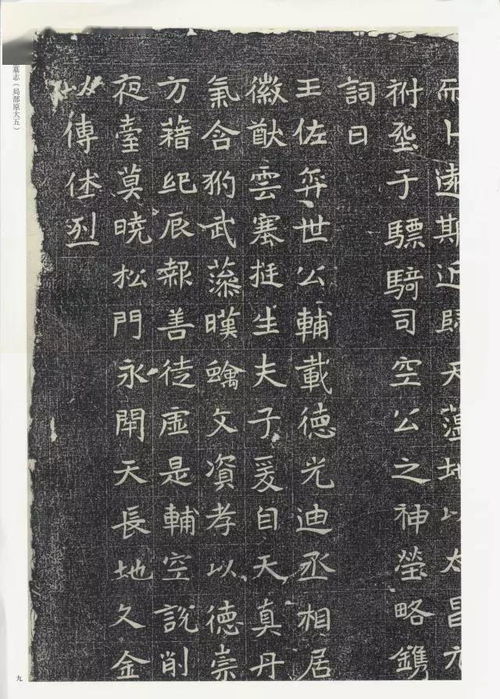 而卜遠斯近歸天蕩地以太昌元
祔塟于驃騎司空公之神塋略鐫
詞曰
王佐弈世公輔載德光迪丞相居
徽猷雲褰挺生夫子爰自天真丹
氣含豹武藻暵文資孝以德崇
方藉紀辰報善徒虛是輔空說削
夜臺莫曉松門永閇天長地久金
以傳烈
墓志（局部原大五）
九